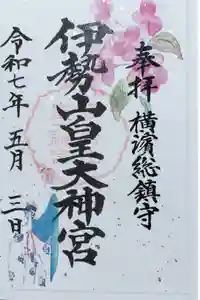 奉拝 横濱総鎮守
伊勢山皇大神宮
令和七年 五月 三日